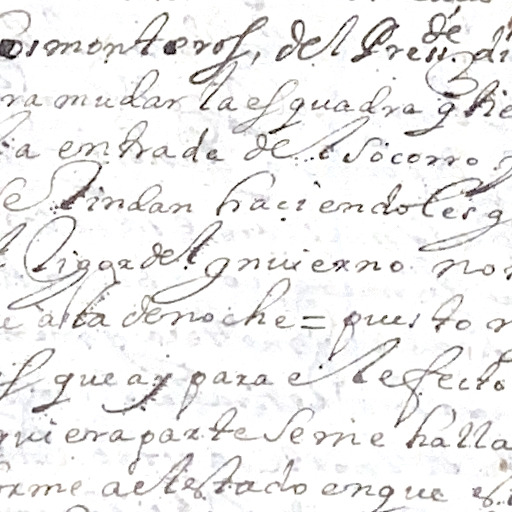 osmonteros, del Presu.de di
ra mudar la esquadra q tie
ia entrada del socorro
se Rindan haciendoles q
l Rigor del ynuierno nor
e asta de noche = puesto
s que ay para el efecto
quiera parte se me halla
orme al estado en que es